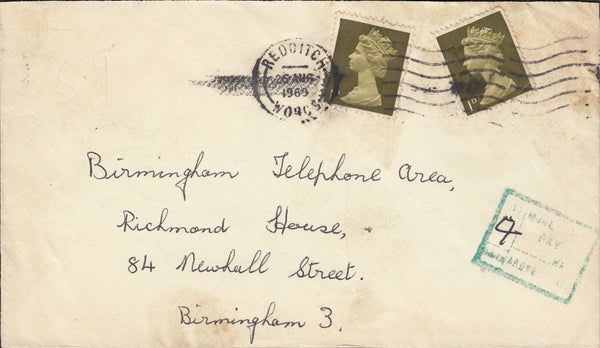 REDDITCH
26 AUG
1969
WORCS
1D
Birmingham Telephone Area,
Richmond House,
84 Newhall Street.
Birmingham 3.
MORE
7
PAY